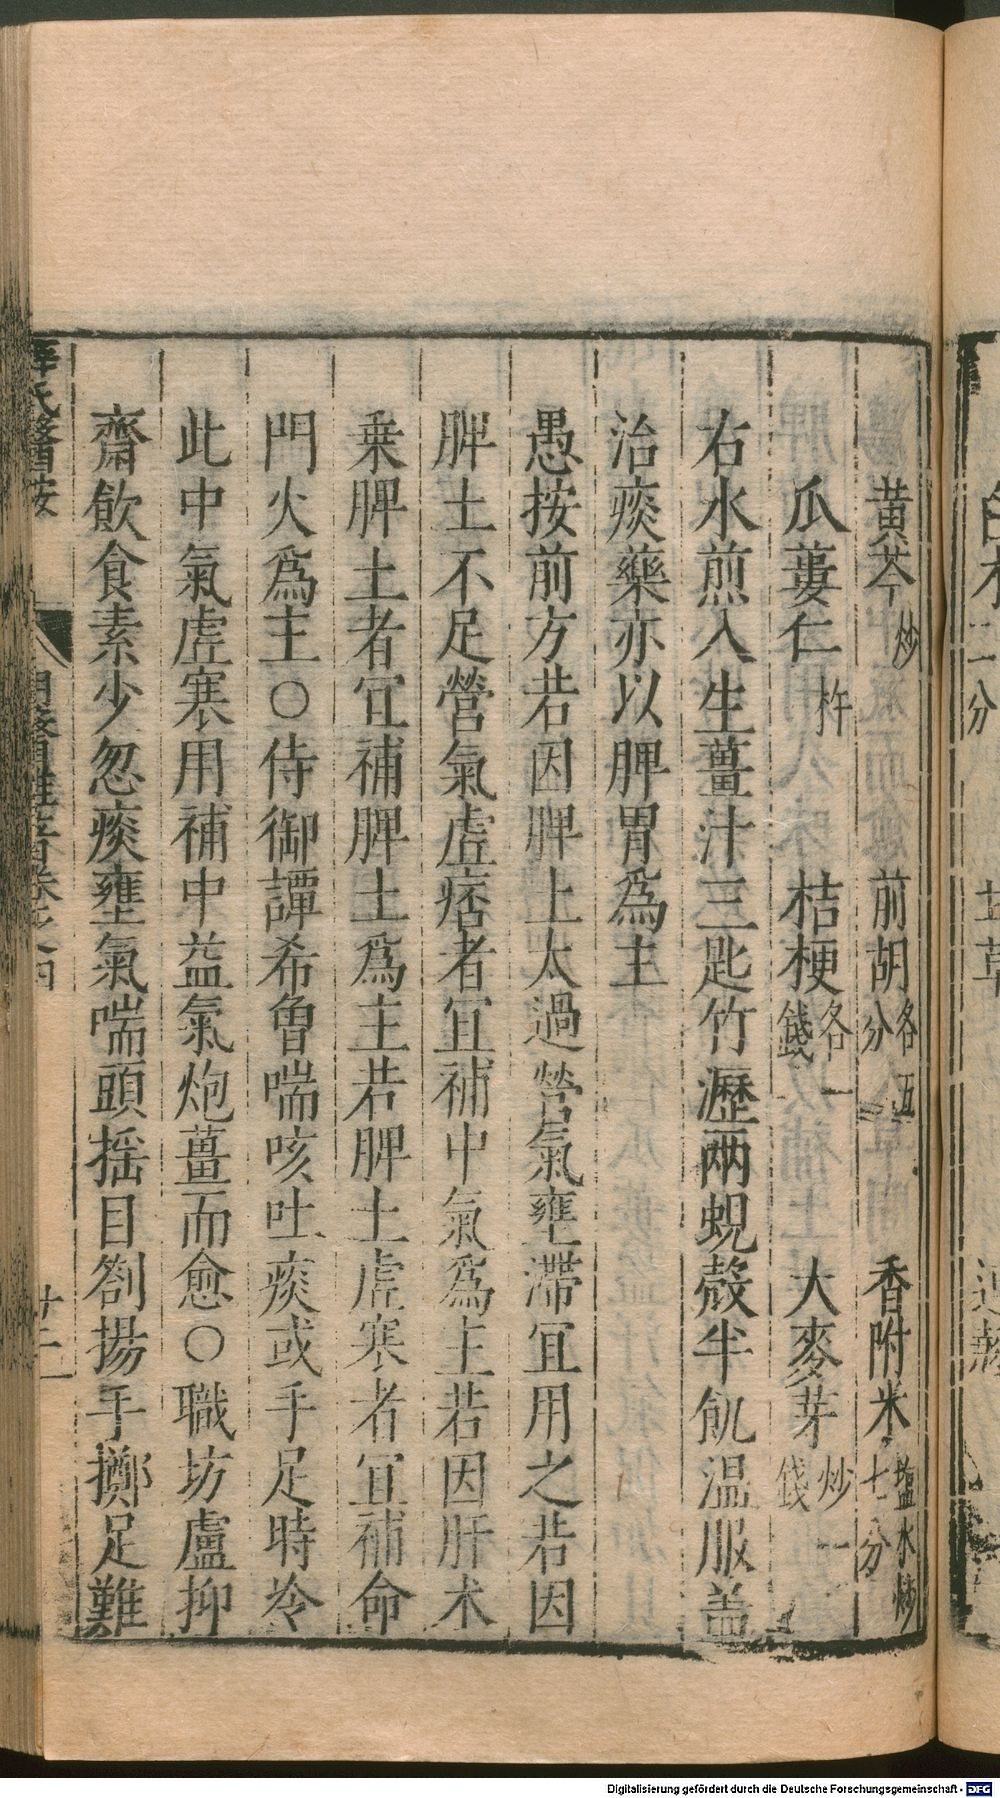 黄芩炒　前胡各五分　香附米塩水炒七分
瓜蔞仁杵　桔梗各一錢　大麥芽炒一錢
右水煎入生薑汁三匙竹瀝兩蜆殼半飢温服盖
治痰藥亦以脾胃爲主
愚按前方若因脾土太過營氣壅滯宜用之若因
脾土不足營氣虚痞者宜補中氣爲主若因肝木
乗脾土者宜補脾土爲主若脾土虚寒者宜補命
門火爲主○侍御譚希魯喘咳吐痰或手足時冷
此中氣虚寒用補中益氣炮薑而愈○職坊盧抑
齋飲食素少忽痰壅氣喘頭揺目劄揚手擲足難
薛氏醫按
明醫雜著卷之四
廿二
Digitalisierung gefördert durch die Deutsche Forschungsgemeinschaft - DFG